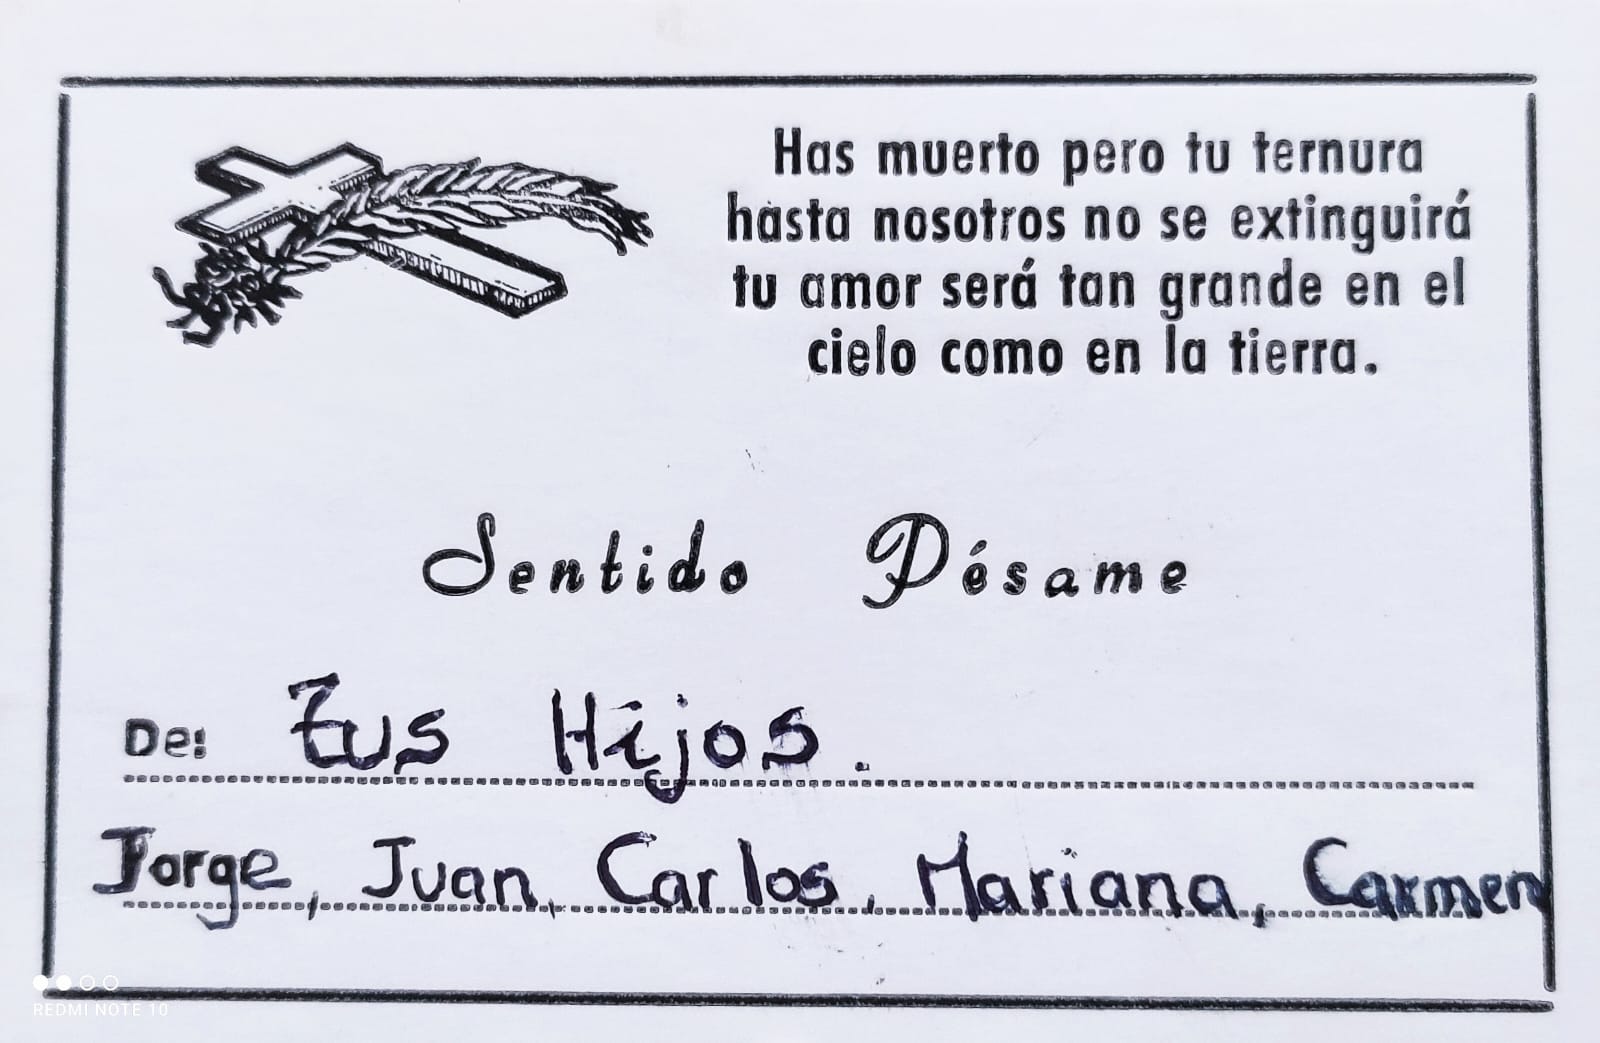 Has muerto pero tu ternura
hasta nosotros no se extinguirá
tu amor será tan grande en el
cielo como en la tierra.
Sentido Pésame
De: Tus Hijos.
Jorge, Juan, Carlos, Mariana, Carmen
REDMI NOTE 10